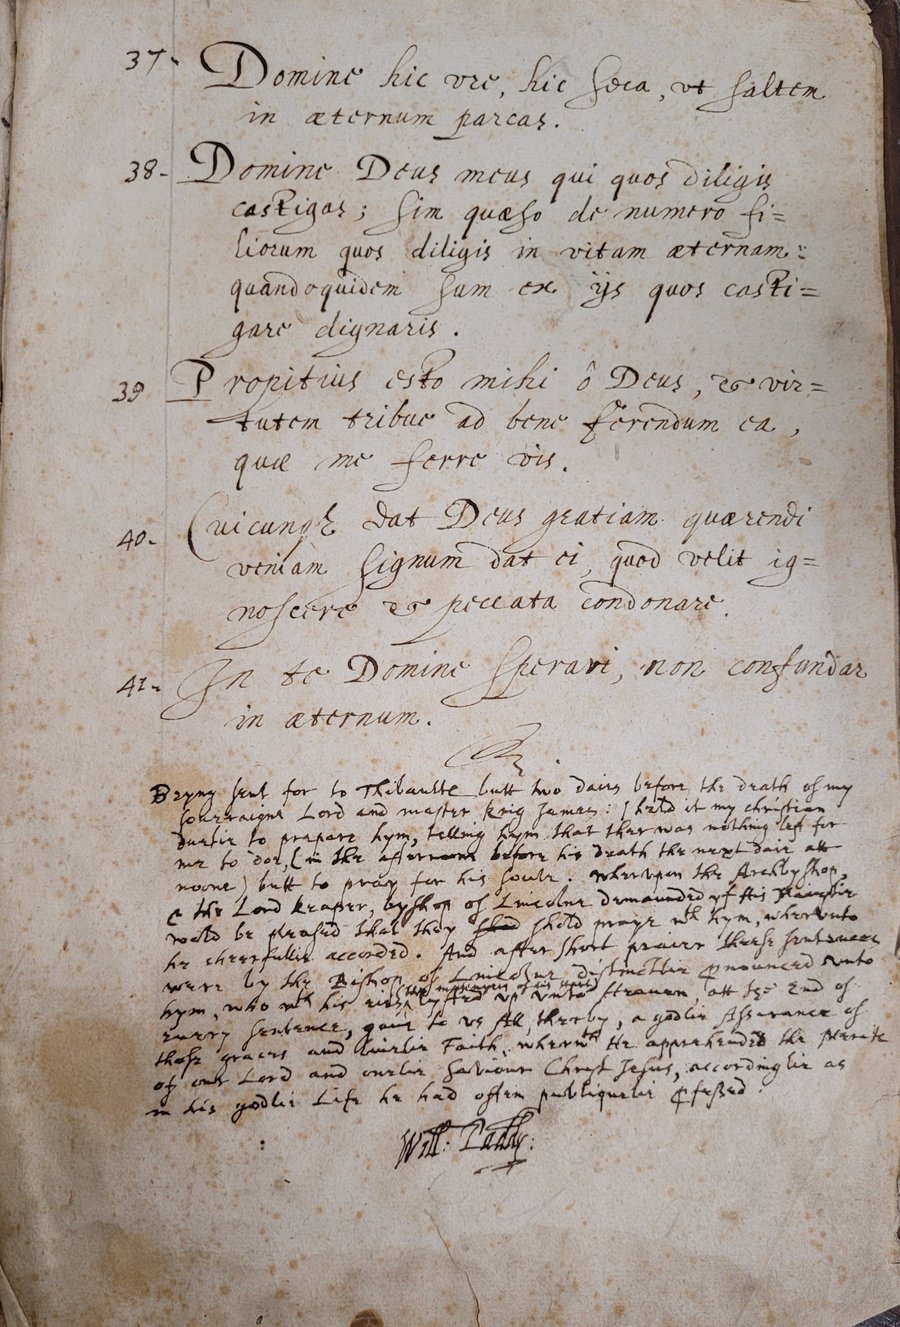 37- Domine hic vre, hic seca, vt saltem
in æternum parcas.
38- Domine Deus meus qui quos diligis
castigas; sim quæso de numero fi=
liorum quos diligis in vitam æternam:
quandoquidem sum ex ijs quos casti=
gare dignaris.
39 Propitius esto mihi ô Deus, & vir=
tutem tribue ad bene ferendum ea,
quæ me ferre vis.
40- Cuicunq3 dat Deus gratiam quærendi
veniam signum dat ei, quod velit ig=
noscere & peccata condonare.
41- In te Domine speravi, non confundar
in æternum.
Beyng sent for to Thibaulte butt two daies before the death of my
soueraigne Lord and master King James: I held it my christian
duetie to prepare hym, telling hym that ther was nothing left for
me to doe, (in the afternoone before his death the next daie att
noone) butt to pray for his soule. Wherevpon the Archbyshop,
& the Lord Keaper, byshop of Lincolne demaunded yf His Maiestie
wold be pleased that they shold praye wth hym, wherevnto
he cheerfullie accorded. And after short praier these sentences
were by the Bishop of Lincolne distinctlie pnounced vnto
hym, who wth his eies, (the messengers of his hart) lyfted vp vnto Heaven, att the End of
euery sentence, gaue to vs All, therby, a godlie Assurance of
those graces and liuelie Faith, wherwth He apprehended the Merite
of our Lord and onelie Saviour Christ Jesus, accordinglie as
in his godlie Life he had often publiquelie pfessed.
Will: Paddy.